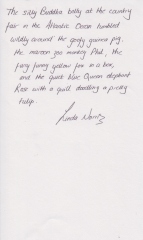 The silly Buddha belly at the country
fair in the Atlantic Ocean tumbled
wildly around the goofy guinea pig,
the maroon sea monkey Phil, the
funny yellow fox in a box,
and the quick Nuc Queen elephant
Rose with a quill doodling a pretty
tulip.
Linda